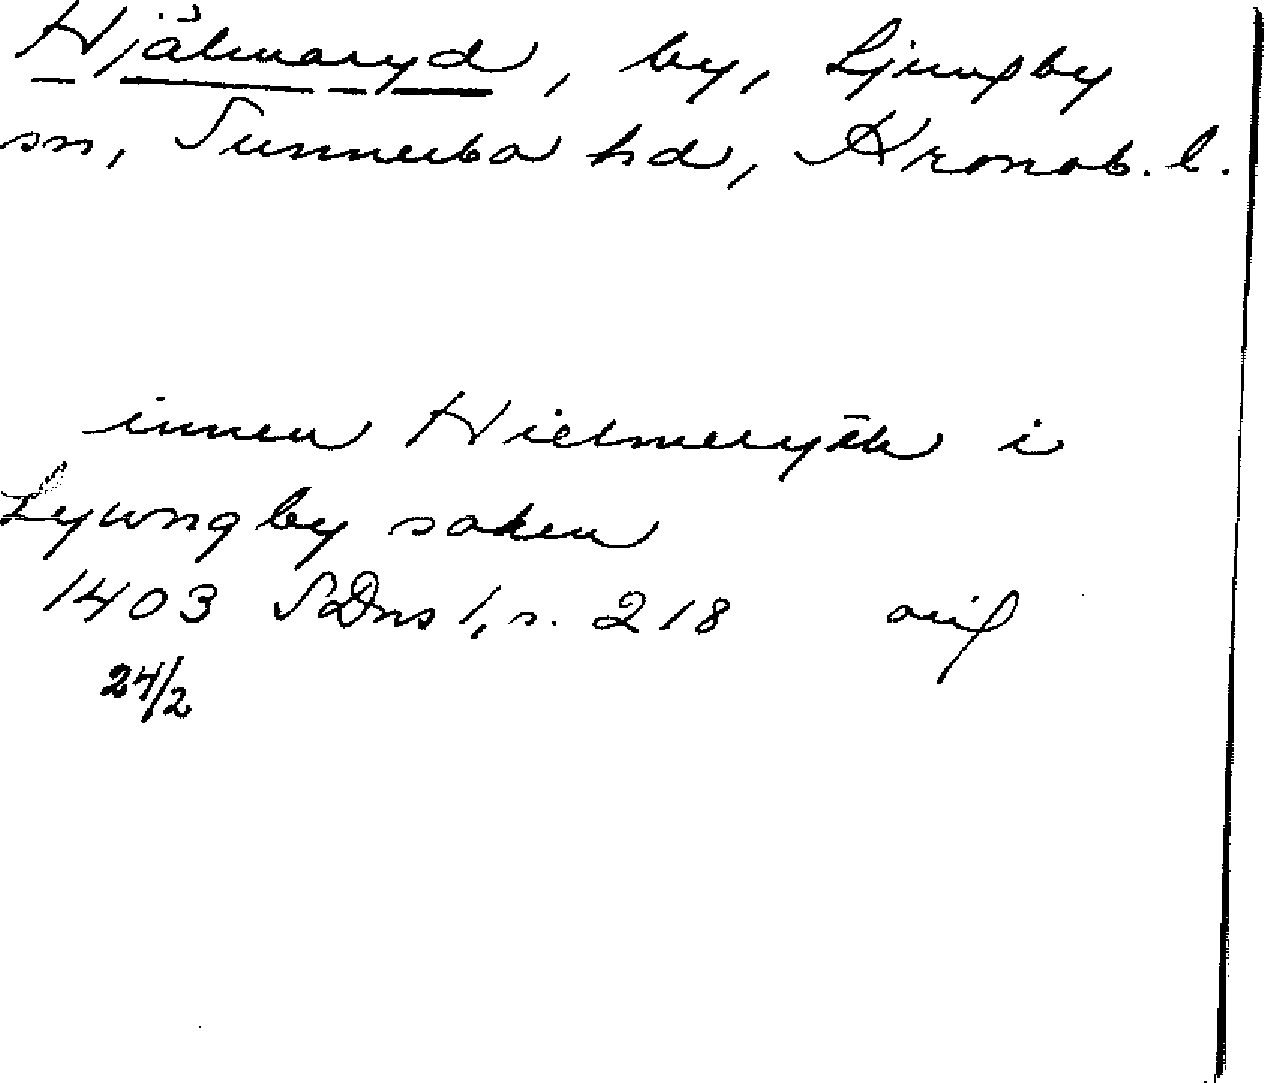 Hjälmaryd, by, Ljungby
sn, Sunnerbo hd, Kronob. l.
innen Hielmeryth i
Lyungby soken
1403 SDns 1, s. 218 orig
24/2